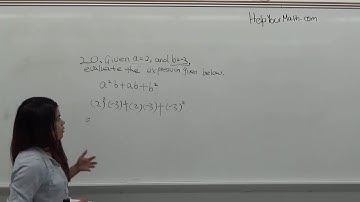 HelpYourMath.com
20. Given a=2, and b=-3,
evaluate the expression given below.
a²b+ab+b²
(2)²(-3)+(2)(-3)+(-3)²
=